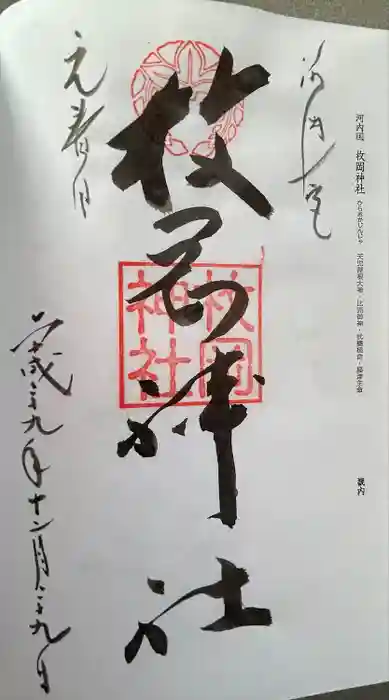 河内国 枚岡神社 ひらおかじんじゃ 天児屋根大神・比売御神・武甕槌命・斎主命 畿内
河内一宮
枚岡神社
枚岡
神社
元春日
平成二十九年十二月二十九日